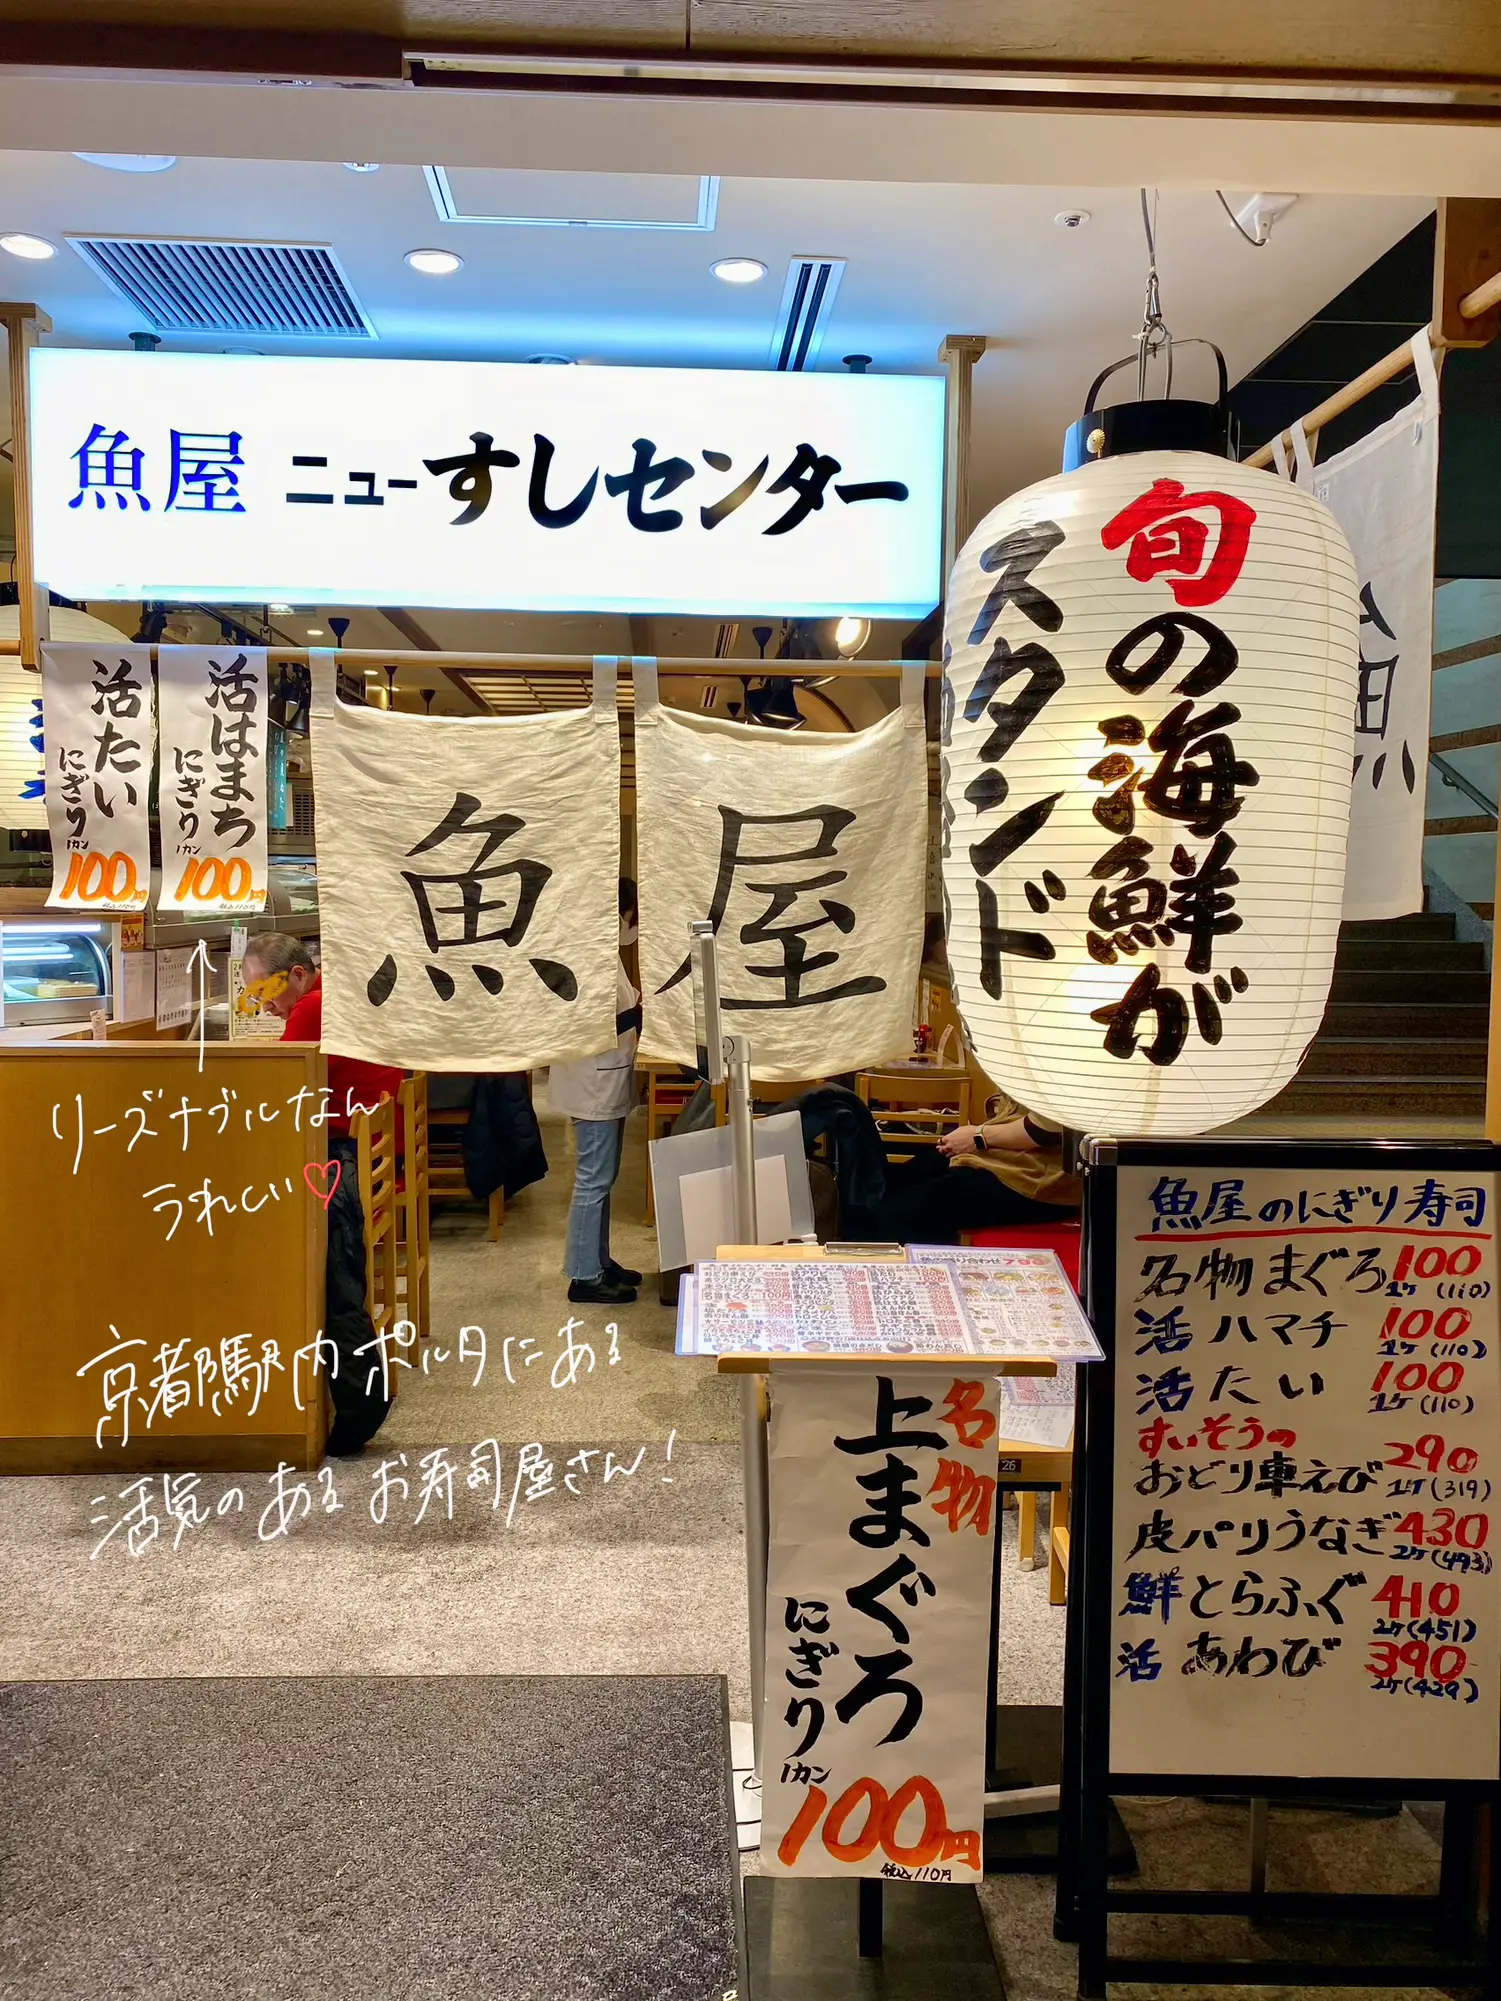 魚屋 ニューすしセンター
旬の海鮮が
スタンド
活たい
にぎり
1カン
100円
税込110円
活はまち
にぎり
1カン
100円
税込110円
魚屋
魚
リーズナブルなん
うれしい♡
京都駅内ポルタにある
活気のあるお寿司屋さん!
名物
上まぐろ
にぎり
1カン
100円
税込110円
魚屋のにぎり寿司
名物まぐろ 100
1ケ(110)
活ハマチ 100
1ケ(110)
活たい 100
1ケ(110)
すいそうの
おどり車えび 290
1ケ(319)
皮パリうなぎ 430
2ケ(493)
鮮とらふぐ 410
2ケ(451)
活あわび 390
2ケ(429)
26